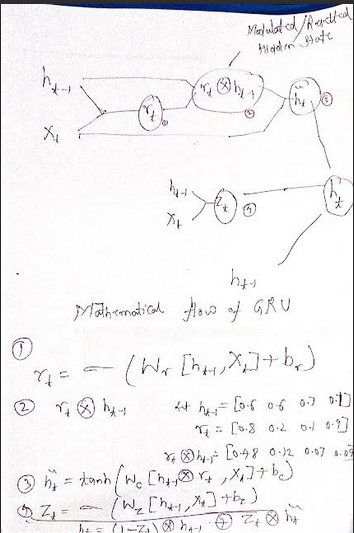 Modulated / Resetted
Hidden State
h_t-1
r_t ⊗ h_t-1
r_t ①
②
h̃_t ③
X_t
h_t-1
Z_t ④
X_t
h_t
h_t-1
Mathematical flow of GRU
①
r_t = σ (W_r [h_t-1, X_t] + b_r)
② r_t ⊗ h_t-1 let h_t-1 = [0.6 0.6 0.7 0.1]
r_t = [0.8 0.2 0.1 0.9]
r_t ⊗ h_t-1 = [0.48 0.12 0.07 0.09]
③ h̃_t = tanh (W_c [h_t-1 ⊗ r_t, X_t] + b_c)
④ Z_t = σ (W_z [h_t-1, X_t] + b_z)
h_t = (1-Z_t) ⊗ h_t-1 ⊕ Z_t ⊗ h̃_t